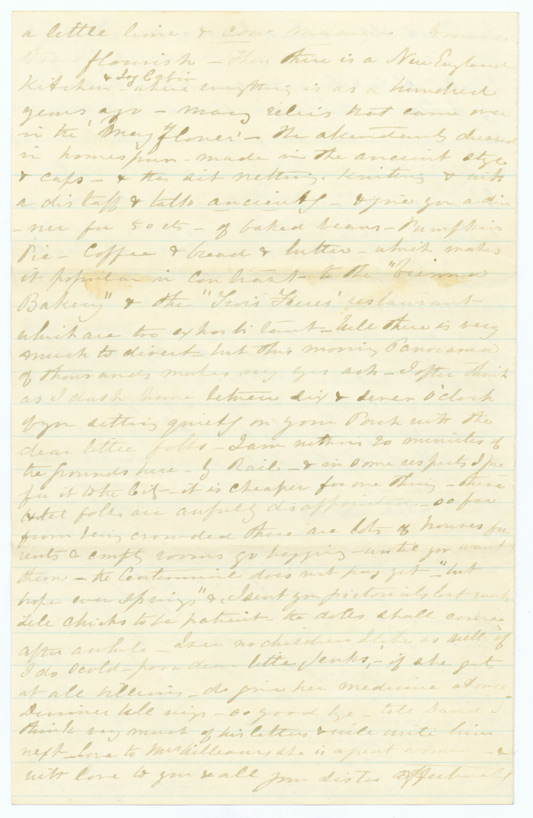 a little lime & cow
flourish - Then there is a New England
Kitchen & Log Cabin where everything is as a hundred
years ago - many relics that came over
in the 'May Flower' - the attendants dressed
in homespun - made in the ancient style
& caps - & they sit netting. Knitting & with
a distaff & talk anciently - & give you a din
-ner for 50 cts - of baked beans - Pumpkin
Pie - Coffee & bread & butter - which makes
it popular in contrast to the "Vienna
Bakery" & the "Trois Freres' restaurant
which are too exhorbitant - Well there is very
much to divert but this moving Panorama
of thousands makes my eyes ach - I often think
as I dash home between six & seven O'clock
of you sitting quietly on your Porch with the
dear little folks - I am within 20 minutes of
the grounds here - by Rail - & in some respects I pre
fer it to the City - it is cheaper for one thing - these
Hotel folks are awfully disappointed - so far
from being crowded there are lots of houses for
rent & empty rooms go begging - until you want
them - the Centennial does not pay yet - "but
hope ever springs" & I sent you pictorials last week
tell chicks to be patient the dolls shall come
after awhile - I see no children I like as well "if
I do scold - poor dear little Jenks, - if she gets
at all billious - do give her medicine at once
Dinner bell rings - so good bye tell
think very much of his letters & will write him
next - Love to Mrs Williams she is a great woman - &
with love to you & all your sister affectionately